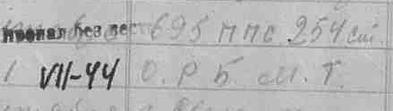 пропал без вест 695 ппс 254 сп.
1 VII-44 О. Р. Б. М. Т.